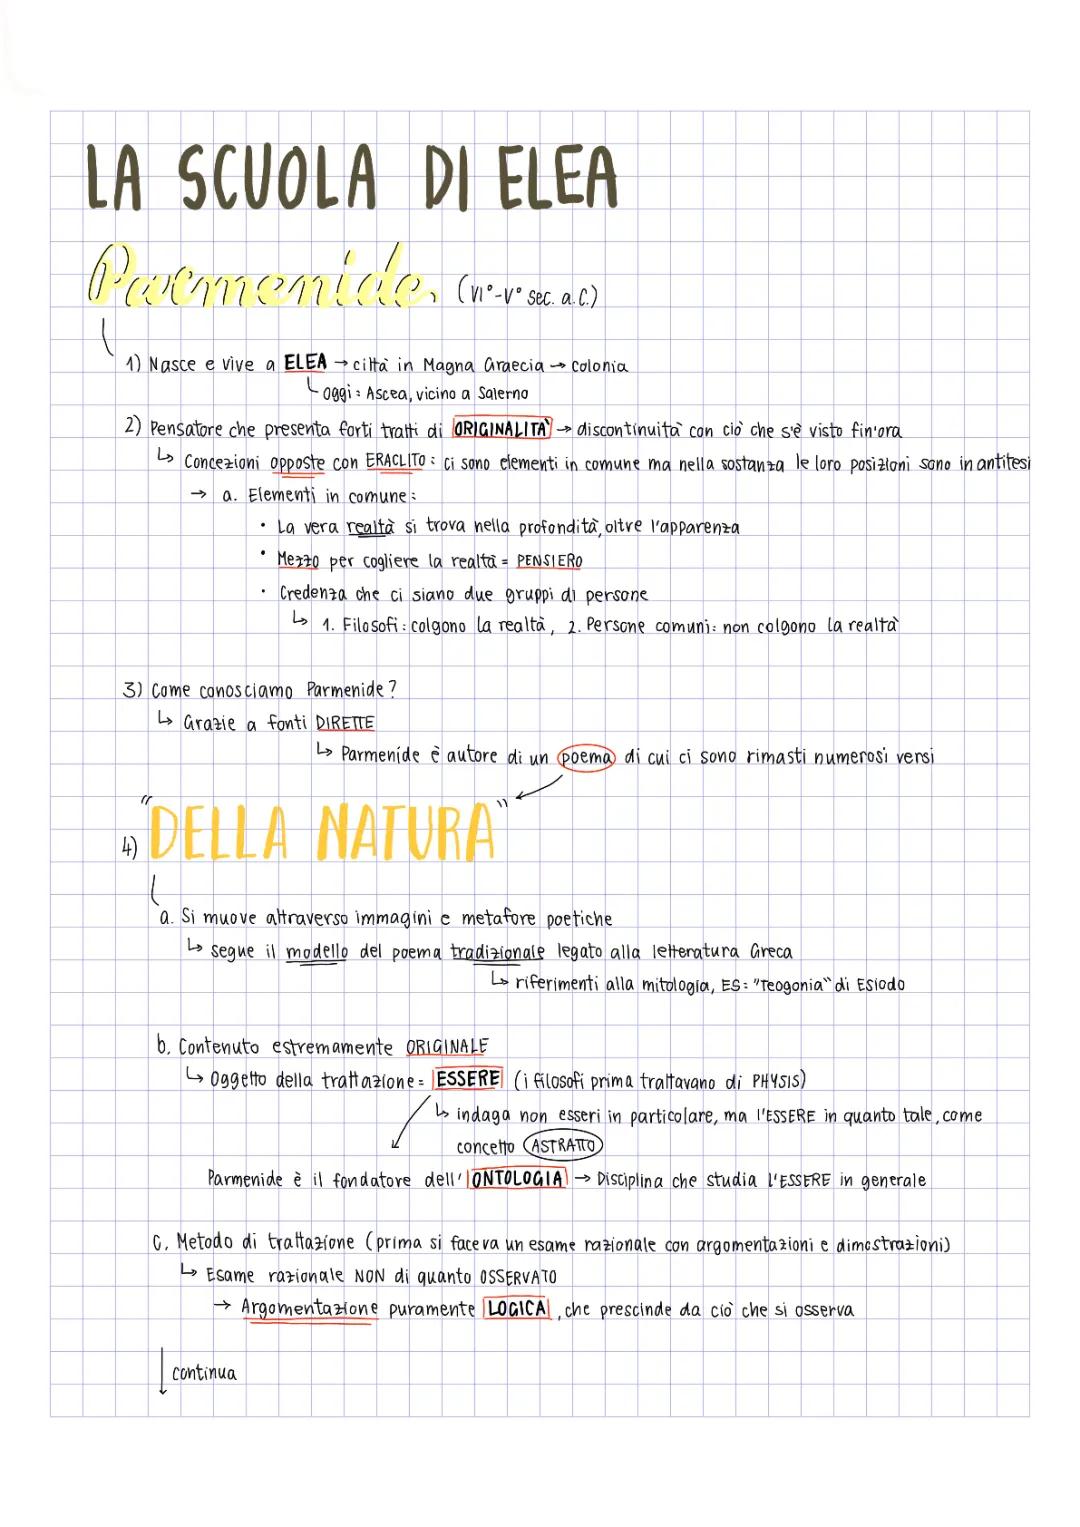 LA SCUOLA DI ELEA
Parmenide (VI°-V° sec. a.C.)
1) Nasce e vive a ELEA → città in Magna Graecia → colonia
oggi: Ascea, vicino a Salerno
2) Pensatore che presenta forti tratti di ORIGINALITÀ → discontinuità con ciò che s'è visto fin'ora
↳ Concezioni opposte con ERACLITO: ci sono elementi in comune ma nella sostanza le loro posizioni sono in antitesi
→ a. Elementi in comune:
• La vera realtà si trova nella profondità, oltre l'apparenza
• Mezzo per cogliere la realtà = PENSIERO
• Credenza che ci siano due gruppi di persone
↳ 1. Filosofi: colgono la realtà, 2. Persone comuni: non colgono la realtà
3) Come conosciamo Parmenide?
↳ Grazie a fonti DIRETTE
↳ Parmenide è autore di un poema di cui ci sono rimasti numerosi versi
4) "DELLA NATURA"
a. Si muove attraverso immagini e metafore poetiche
↳ segue il modello del poema tradizionale legato alla letteratura Greca
↳ riferimenti alla mitologia, ES: "Teogonia" di Esiodo
b. Contenuto estremamente ORIGINALE
↳ Oggetto della trattazione = ESSERE (i filosofi prima trattavano di PHYSIS)
↳ indaga non esseri in particolare, ma l'ESSERE in quanto tale, come
concetto ASTRATTO
Parmenide è il fondatore dell'ONTOLOGIA → Disciplina che studia l'ESSERE in generale
c. Metodo di trattazione (prima si faceva un esame razionale con argomentazioni e dimostrazioni)
↳ Esame razionale NON di quanto OSSERVATO
→ Argomentazione puramente LOGICA, che prescinde da ciò che si osserva
↓ continua